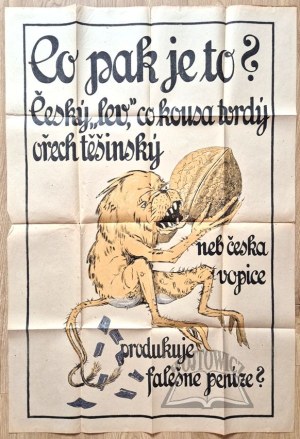 Co pak je to?
Český „lev," co kousa tvrdý
ořech těšinský
neb česka
vopice
produkuje
falešne penize?
WÓJTOWICZ